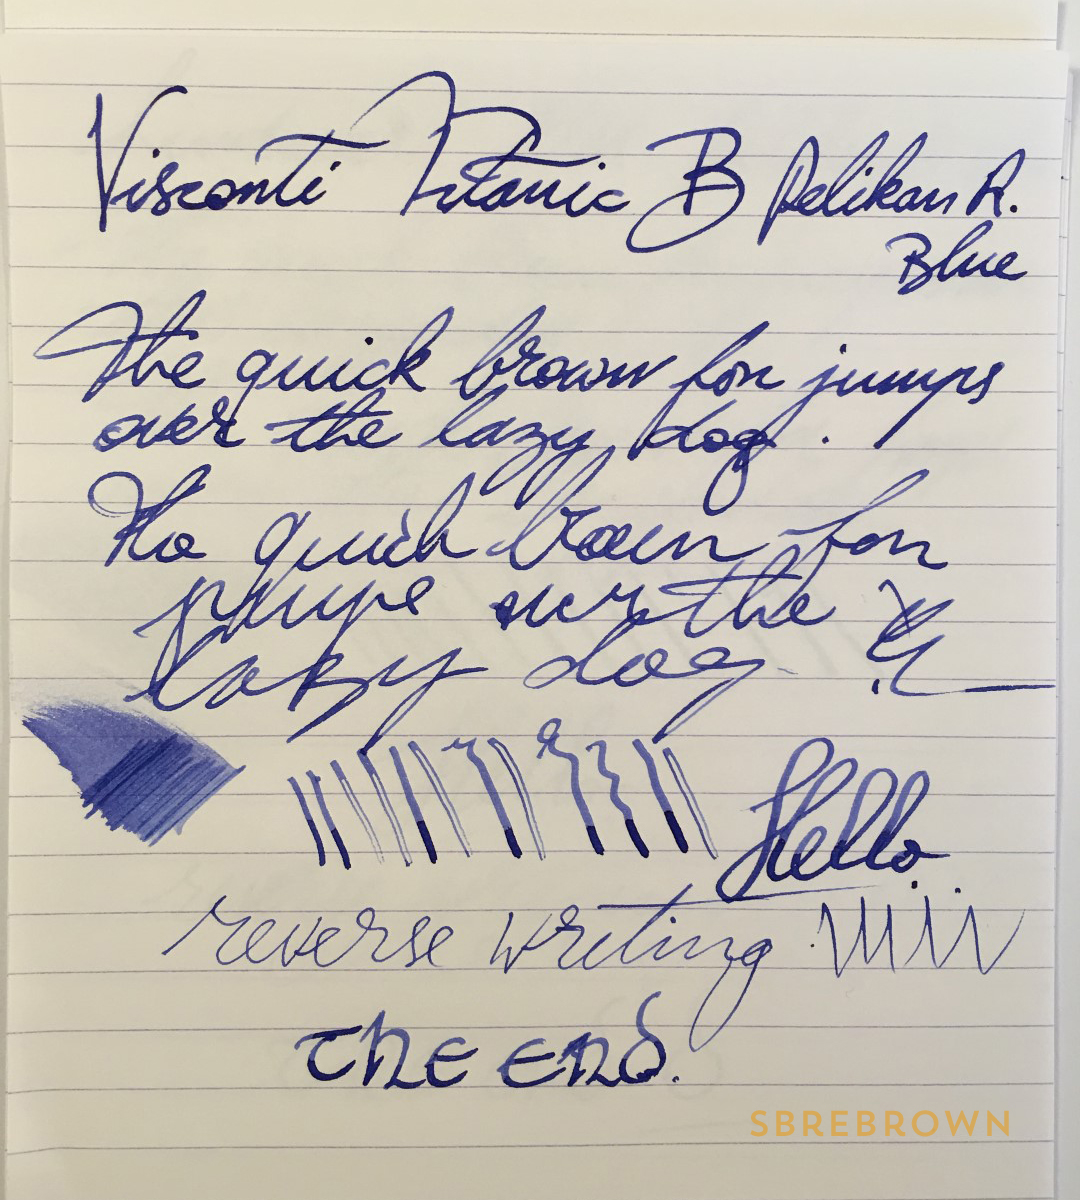 Visconti Titanic B Pelikan R.
Blue
The quick brown fox jumps
over the lazy dog.
The quick brown fox
jumps over the
lazy dog.
Hello
reverse writing
The End.
SBREBROWN